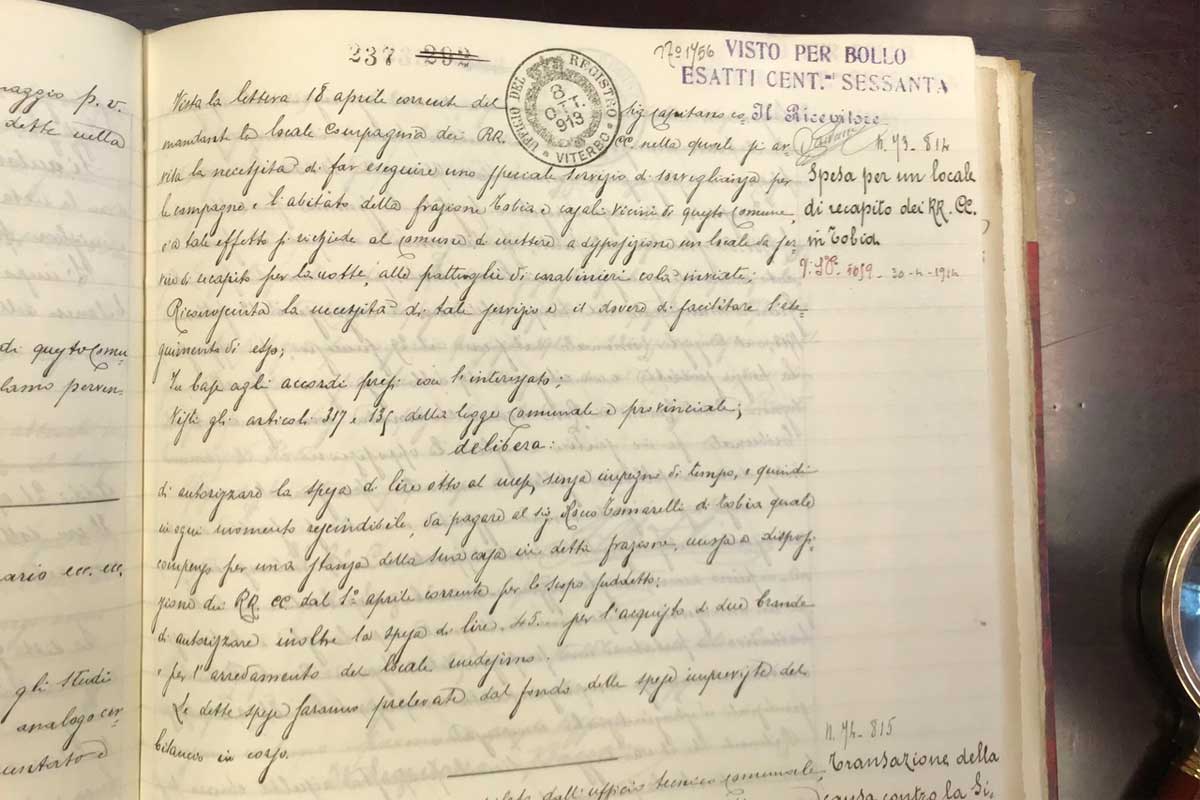 naggio p. v.
dette nella
di questo Comu-
lamo perven-
ario ecc. ecc.
gli studi
analogo cer-
untato e
2373 202
UFFICIO DEL REGISTRO
8 OTT. 913
* VITERBO *
No 1756 VISTO PER BOLLO
ESATTI CENT.mi SESSANTA
Il Ricevitore
Vista la lettera 18 aprile corrente del sig. Capitano co-
mandante la locale Compagnia dei RR. CC. nella quale si av-
visa la necessità di far eseguire uno speciale servizio di sorveglianza per
le campagne e l'abitato della frazione Tobia e casali vicini di questo comune,
e a tale effetto si richiede al comune di mettere a disposizione un locale da ser-
vire di recapito per la notte, alle pattuglie di carabinieri colà inviate;
Riconosciuta la necessità di tale servizio e il dovere di facilitare l'ese-
guimento di esso;
In base agli accordi presi con l'interessato;
Visti gli articoli 317 e 135 della legge comunale e provinciale;
delibera:
di autorizzare la spesa di lire otto al mese, senza impegno di tempo, e quindi
in ogni momento rescindibile, da pagare al sig. Rocco Tomarelli di Tobia quale
compenso per una stanza della sua casa in detta frazione, messa a disposi-
zione dei RR. CC dal 1° aprile corrente per lo scopo suddetto;
di autorizzare inoltre la spesa di lire 45. per l'acquisto di due brande
e per l'arredamento del locale medesimo.
Le dette spese saranno prelevate dal fondo delle spese impreviste del
bilancio in corso.
n. 73 - 814
Spesa per un locale
di recapito dei RR. CC.
in Tobia
1059 - 30-4-1914
n. 74 - 815
Transazione della
causa contro la Si-
dall'ufficio tecnico comunale